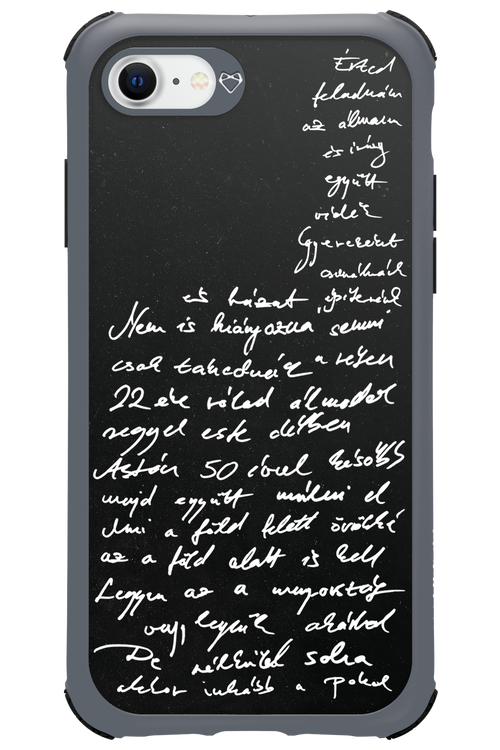 Érted
feladnám
az álmam
és így
együtt
vidék
Gyerekeket
csinálnánk
és házat építenénk
Nem is hiányozna semmi
csak takednéz a vesen
22 éve rólad álmodok
reggel este délben
Aztán 50 évvel később
majd együtt múlni el
Ami a föld felett örökké
az a föld alatt is kell
Legyen az a mennyország
vagy legyünk akárhol
De nélküled soha
akkor inkább a Pokol